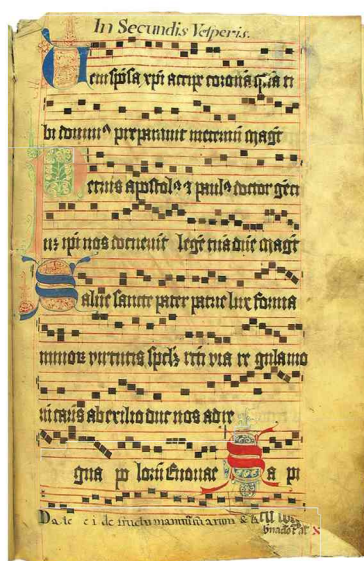 In Secundis Vesperis.
Veni sponsa xpi accipe coronā quā ti
bi dominus preparavit in eternū magt
Petrus apostolus et paulus doctor gēti
um ipi nos docuerūt legē tuā dñe magt
Salve sancte pater patrie lux forma
minorū virtutis specl₃ recti via regula mo
ru carnis ab exilio duc nos ad re
gna po lorū Evovae Sa pi
Da te e i de fructu manuum suarum &